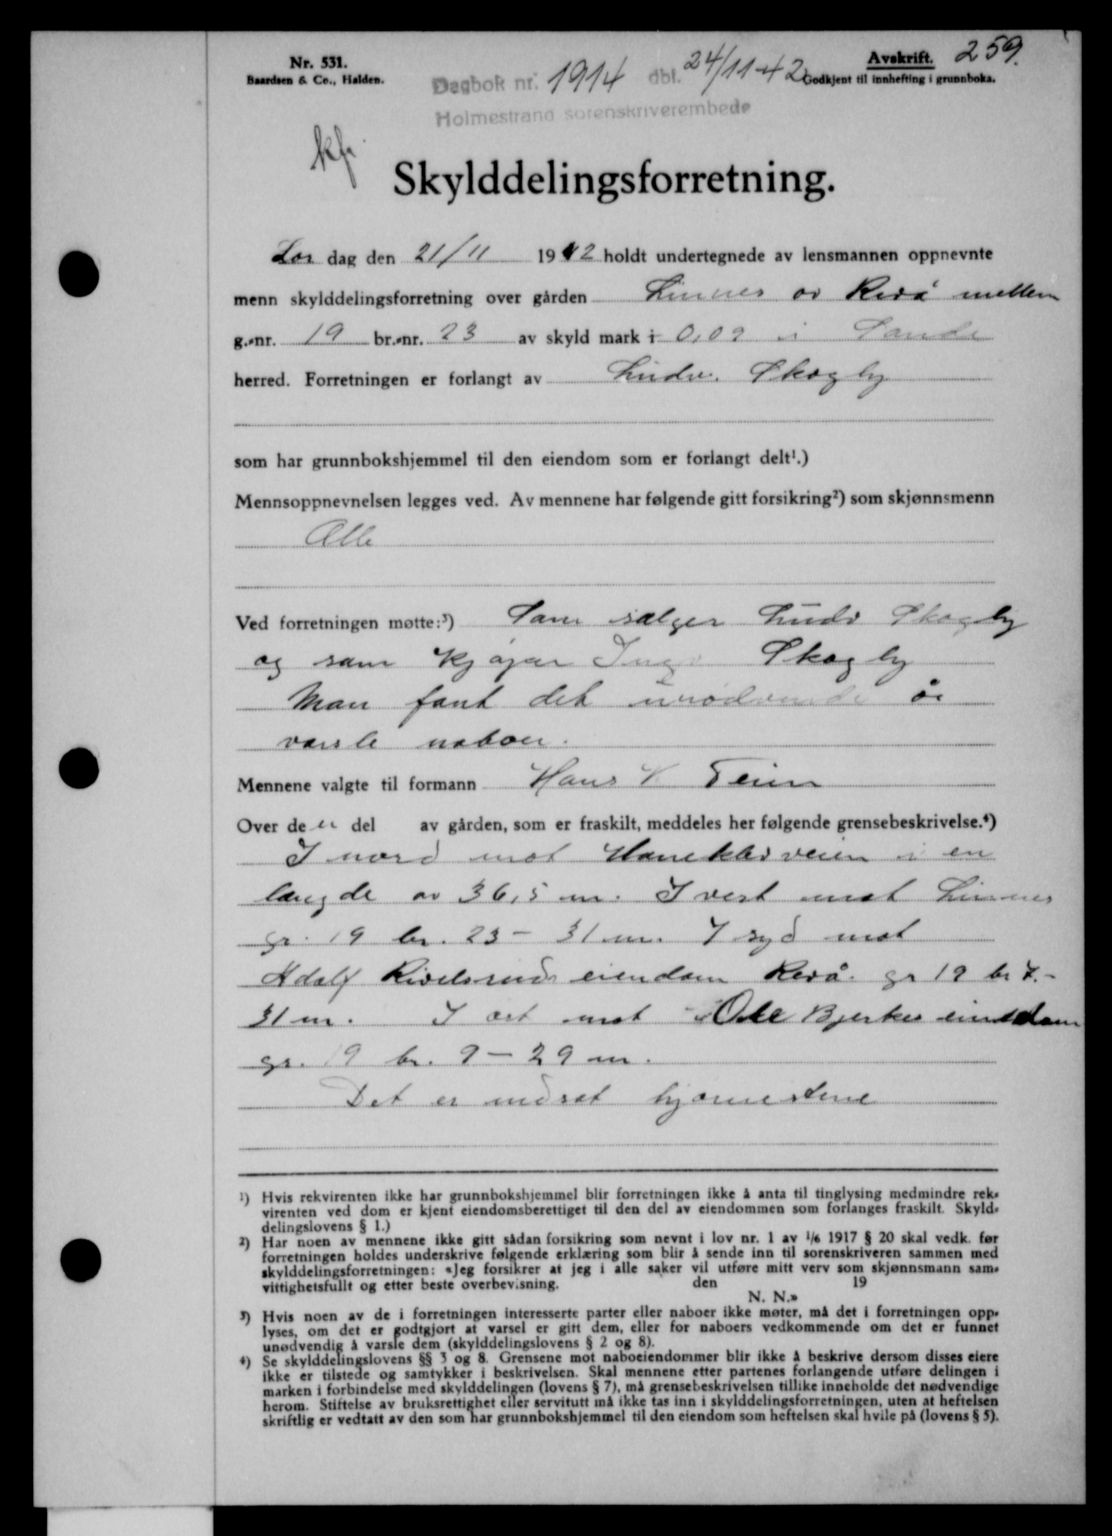 Nr. 531.
Baardsen & Co., Halden.
Dagbok nr. 1914 dbl. 24/11-42
Holmestrand sorenskriverembede
Avskrift. 259.
Godkjent til innhefting i grunnboka.
kfr.
Skylddelingsforretning.
Lør dag den 21/11 1942 holdt undertegnede av lensmannen oppnevnte
menn skylddelingsforretning over gården Linnes av Revå mellem
g.-nr. 19 br.-nr. 23 av skyld mark 0,09 i Sande
herred. Forretningen er forlangt av Ludv. Skogby
som har grunnbokshjemmel til den eiendom som er forlangt delt¹.)
Mennsoppnevnelsen legges ved. Av mennene har følgende gitt forsikring²) som skjønnsmenn
Alle
Ved forretningen møtte:³) Som sælger Ludv Skogby
og som kjøper Skogby
Man fant det unødvendi å
varsle naboer.
Mennene valgte til formann Hans Teien
Over den del av gården, som er fraskilt, meddeles her følgende grensebeskrivelse.⁴)
I nord mot Haneklevveien i en
længde av 36,5 m. I vest mot Linnes
gr. 19 br. 23 – 31 m. I syd mot
Adolf eiendom Revå. gr 19 br 7.-
31 m. I øst mot Ole Bjerkes eiendom
gr. 19 br. 9 – 29 m.
Det er nedsat hjørnestene
¹) Hvis rekvirenten ikke har grunnbokshjemmel blir forretningen ikke å anta til tinglysing medmindre rek-
virenten ved dom er kjent eiendomsberettiget til den del av eiendommen som forlanges fraskilt. Skyld-
delingslovens § 1.)
²) Har noen av mennene ikke gitt sådan forsikring som nevnt i lov nr. 1 av ¹/6 1917 § 20 skal vedk. før
forretningen holdes underskrive følgende erklæring som blir å sende inn til sorenskriveren sammen med
skylddelingsforretningen: «Jeg forsikrer at jeg i alle saker vil utføre mitt verv som skjønnsmann sam-
vittighetsfullt og etter beste overbevisning. den 19
N. N.»
³) Hvis noen av de i forretningen interesserte parter eller naboer ikke møter, må det i forretningen opp-
lyses, om det er godtgjort at varsel er gitt dem, eller for naboers vedkommende om det er funnet
unødvendig å varsle dem (skylddelingslovens § 2 og 8).
⁴) Se skylddelingslovens §§ 3 og 8. Grensene mot naboeiendommer blir ikke å beskrive dersom disses eiere
ikke er tilstede og samtykker i beskrivelsen. Skal mennene etter partenes forlangende utføre delingen i
marken i forbindelse med skylddelingen (lovens § 7), må grensebeskrivelsen tillike inneholde det nødvendige
herom. Stiftelse av bruksrettighet eller servitutt må ikke tas inn i skylddelingsforretningen, uten at heftelsen
skriftlig er vedtatt av den som har grunnbokshjemmel til den eiendom som heftelsen skal hvile på (lovens § 5).